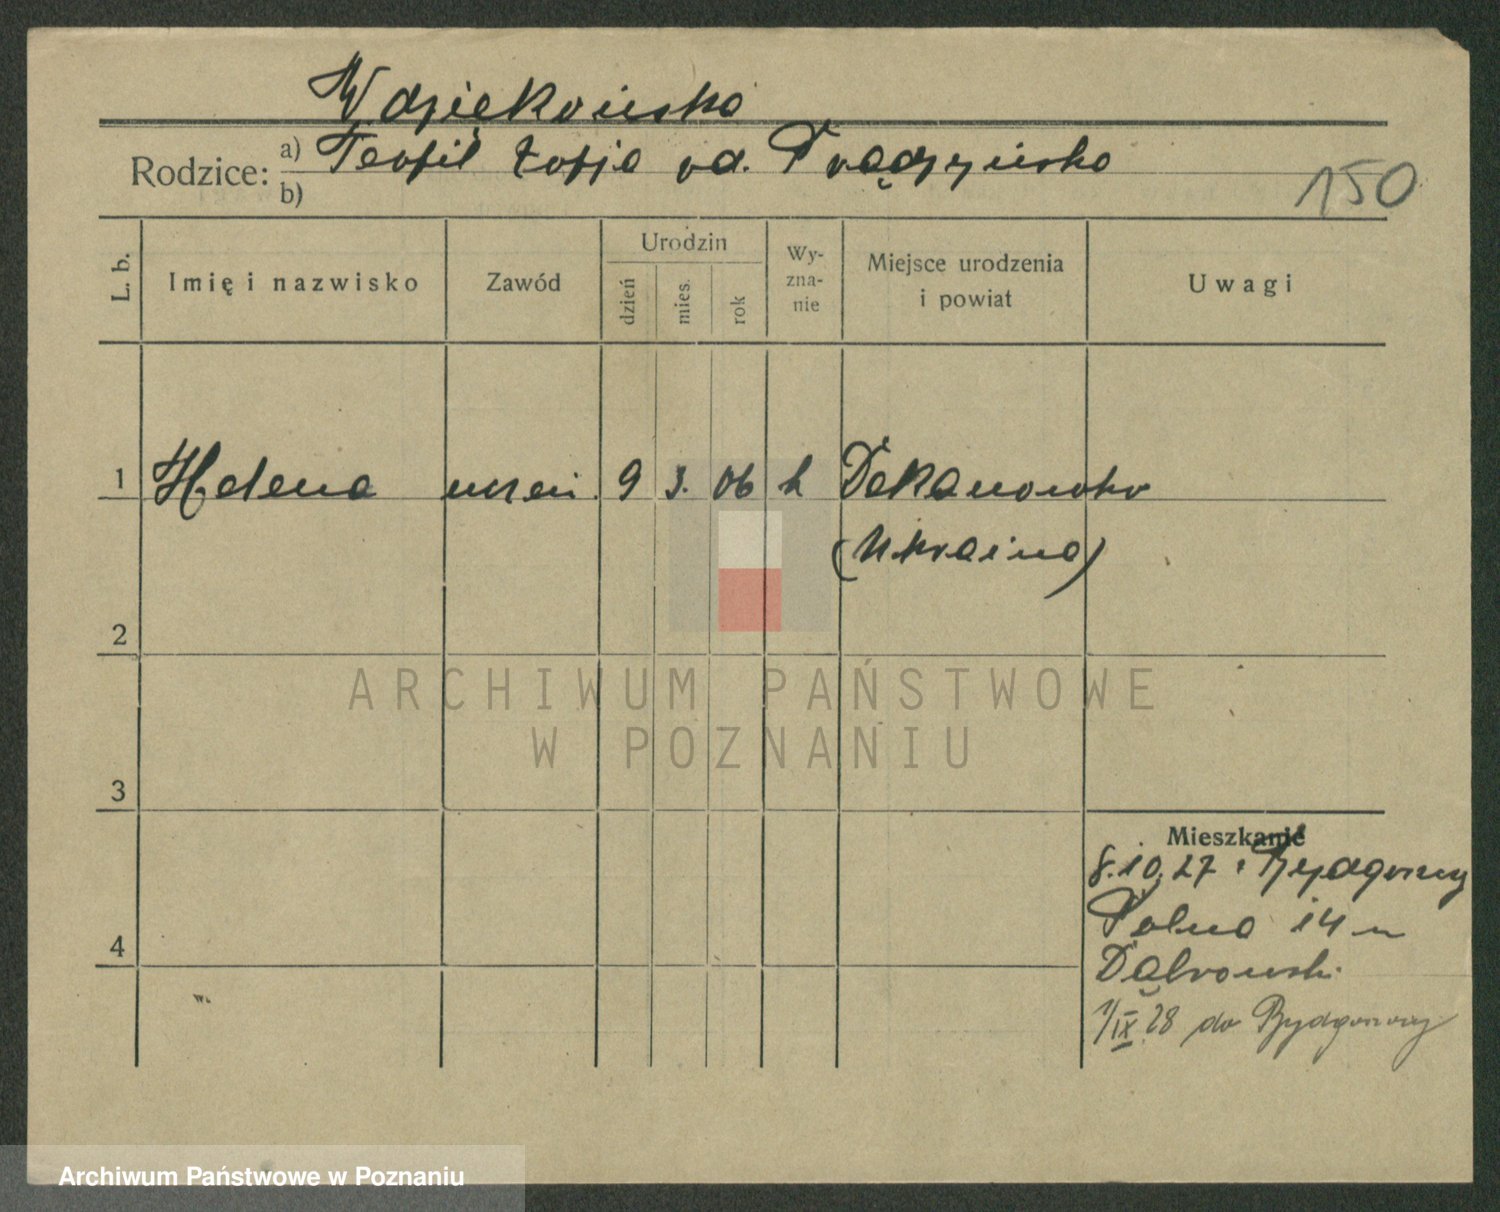 Wdziekońska
Rodzice: a) Teofil Zofja vd. Prądzyńska
b)
150
L. b.
Imię i nazwisko
Zawód
Urodzin
dzień
mies.
rok
Wy-
zna-
nie
Miejsce urodzenia
i powiat
Uwagi
1 Helena 9 3. 06 k Dekanowka
(Ukraina)
2
3
4
Mieszkanie
8.10.27 z Bydgoszczy
Polna 14 u
Dąbrowski
1/IX 28 do Bydgoszczy
ARCHIWUM PAŃSTWOWE
W POZNANIU
Archiwum Państwowe w Poznaniu